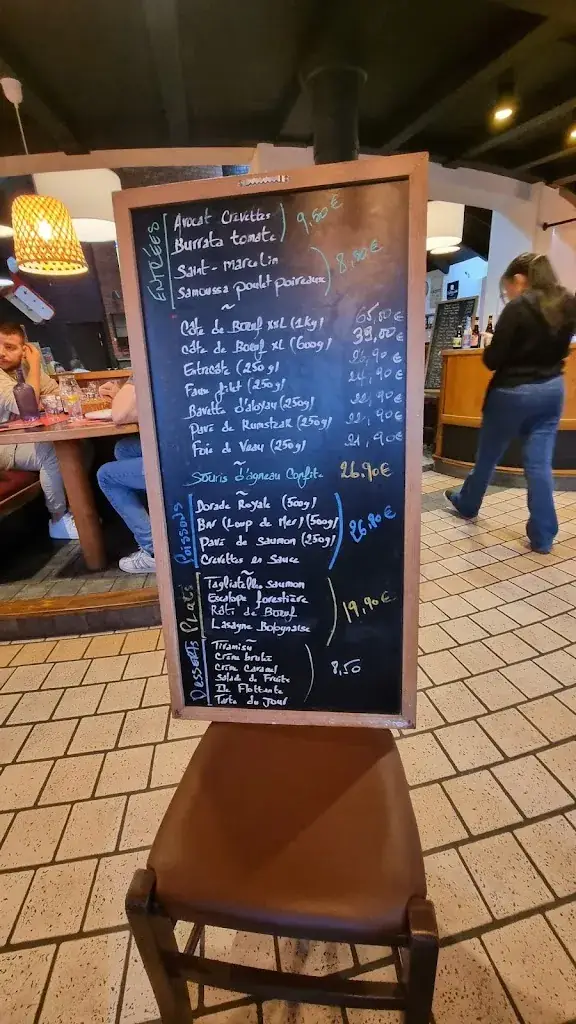 ENTRÉES
Avocat Crevettes
Burrata tomate
9,50€
Saint-marcelin
Samoussa poulet poireaux
8,50€
~
Côte de Bœuf XXL (1kg) 65,00€
Côte de Bœuf XL (600g) 39,00€
Entrecôte (250g) 26,90€
Faux filet (250g) 24,90€
Bavette d'aloyau (250g) 22,90€
Pavé de Rumsteak (250g) 22,90€
Foie de Veau (250g) 21,90€
~
Souris d'agneau Confite 26.90€
~
Poissons
Dorade Royale (500g)
Bar (Loup de Mer) (500g)
Pavé de Saumon (250g)
Crevettes en Sauce
26.90€
~
Plats
Tagliatelles saumon
Escalope forestière
Rôti de Bœuf
Lasagne Bolognaise
19,90€
~
Desserts
Tiramisu
Crème brulée
Crème Caramel
Salade de Fruits
Ile Flottante
Tarte du jour
8,50